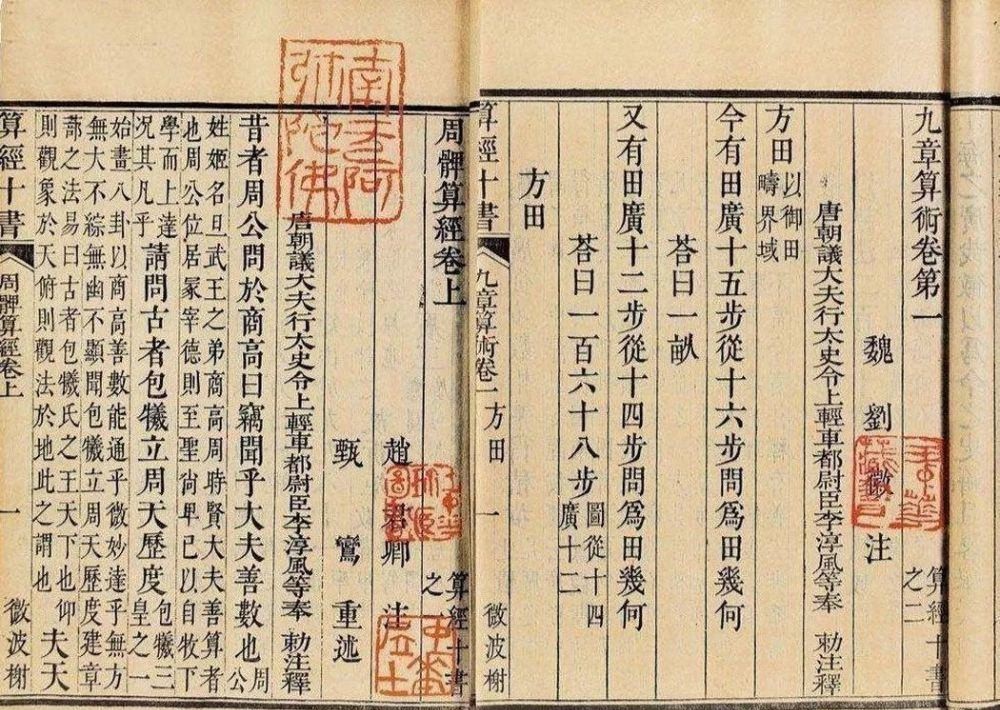 九章算術卷第一 算經十書之二
魏 劉徽 注
唐朝議大夫行太史令上輕車都尉臣李淳風等奉 勅注釋
方田 以御田疇界域
今有田廣十五步從十六步問爲田幾何
荅曰一畝
又有田廣十二步從十四步問爲田幾何
荅曰一百六十八步 圖從十四廣十二
方田
算經十書 九章算術卷一 方田 一 微波榭
周髀算經卷上 算經十書之一
趙君卿 注
甄鸞 重述
唐朝議大夫行太史令上輕車都尉臣李淳風等奉 勅注釋
南无阿弥陀佛
昔者周公問於商高曰竊聞乎大夫善數也 周公
姓姬名旦武王之弟商高周時賢大夫善算者
也周公位居冢宰德則至聖尙卑己以自牧下
學而上達況其凡乎 請問古者包犧立周天歷度 包犧三皇之一
始畫八卦以商高善數能通乎微妙達乎無方
無大不綜無幽不顯聞包犧立周天歷度建章
蔀之法易曰古者包犧氏之王天下也仰
則觀象於天俯則觀法於地此之謂也 夫天
算經十書 周髀算經卷上 一 微波榭